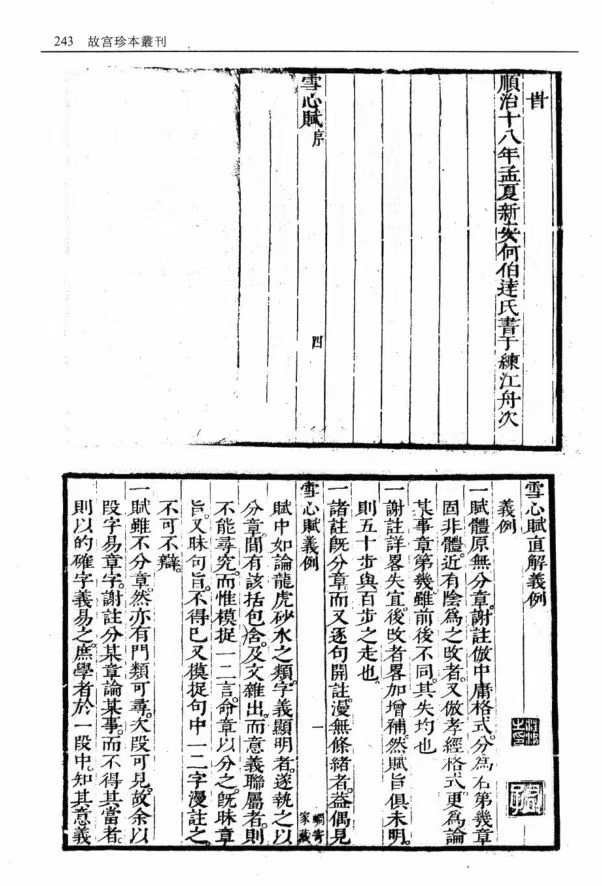 243 故宮珍本叢刊
旹
順治十八年孟夏新安何伯達氏書于練江舟次
雪心賦序
四
雪心賦直解義例
義例
一賦體原無分章。謝註倣中庸格式。分為右第幾章
固非體。近有陰為之改者。又倣孝經格式。更為論
某事章第幾。雖前後不同。其失均也
一謝註詳畧失宜。後改者畧加增補。然賦旨俱未明。
則五十步與百步之走也。
一諸註旣分章而又逐句開註。漫無條緒者。葢偶見
雪心賦義例
一
家藏
賦中如論龍虎砂水之類。字義顯明者。遂執之以
分章。間有該括包含。及文雜出。而意義聯屬者。則
不能尋究而惟模捉一二言。命章以分之。旣昧章
旨。又昧句旨。不得巳又模捉句中一二字漫註之。
不可不辯。
一賦雖不分章。然亦有門類可尋。次段可見。故余以
段字易章字。謝註分某章論某事。而不得其當者。
則以的確字義易之。庶學者於一段中。知其意義